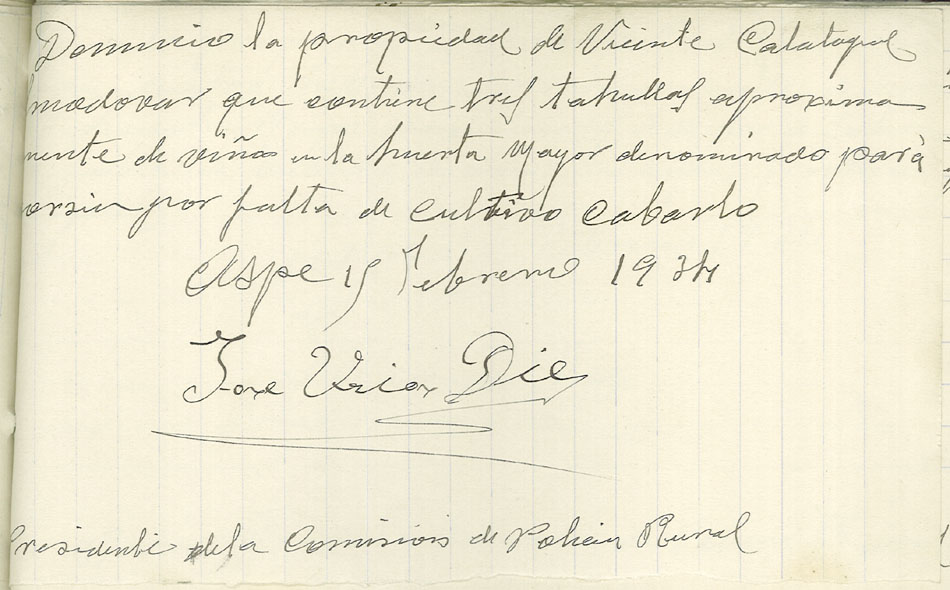 Denuncio la propiedad de Vicente Calatayud
lmodovar que contiene tres tahullas aproxima
mente de viña en la huerta Mayor denominado para
por falta de cultivo cabarlo
Aspe 15 Febrero 1934
Jose Die
Presidente de la Comision de Policia Rural